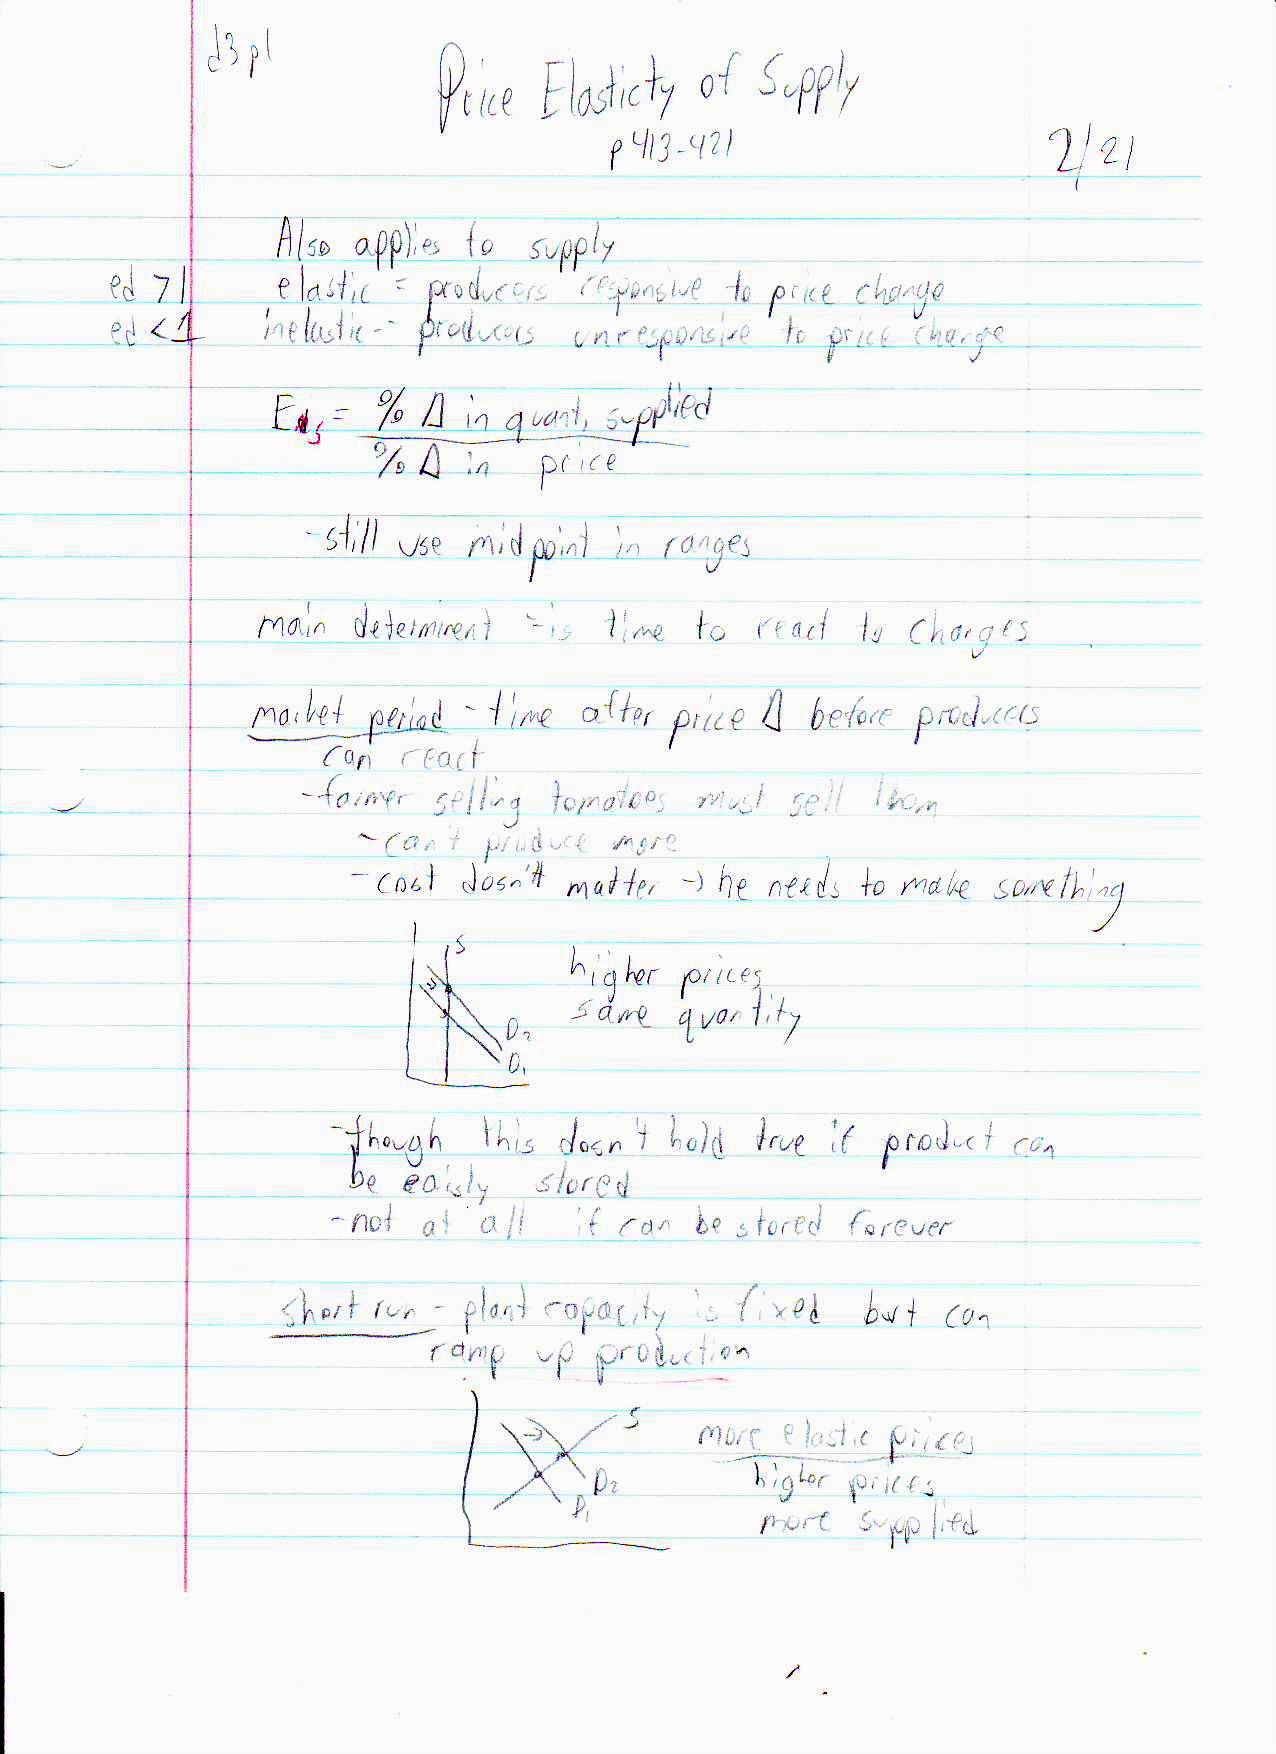 d3 p1
Price Elasticty of Supply
p 413-421
2/21
Also applies to supply
ed >1 elastic = producers responsive to price change
ed <1 inelastic - producers unresponsive to price change
Es = % Δ in quant. supplied
% Δ in price
-still use midpoint in ranges
main determinent - is time to react to changes
market period - time after price Δ before producers
can react
-farmer selling tomatoes must sell them
-can't produce more
-cost dosn't matter → he needs to make something
S
higher prices
same quantity
D2
D1
-though this dosn't hold true if product can
be eaisly stored
-not at all if can be stored forever
short run - plant capacity is fixed but can
ramp up production
S
more elastic prices
D2
higher prices
D1
more supplied